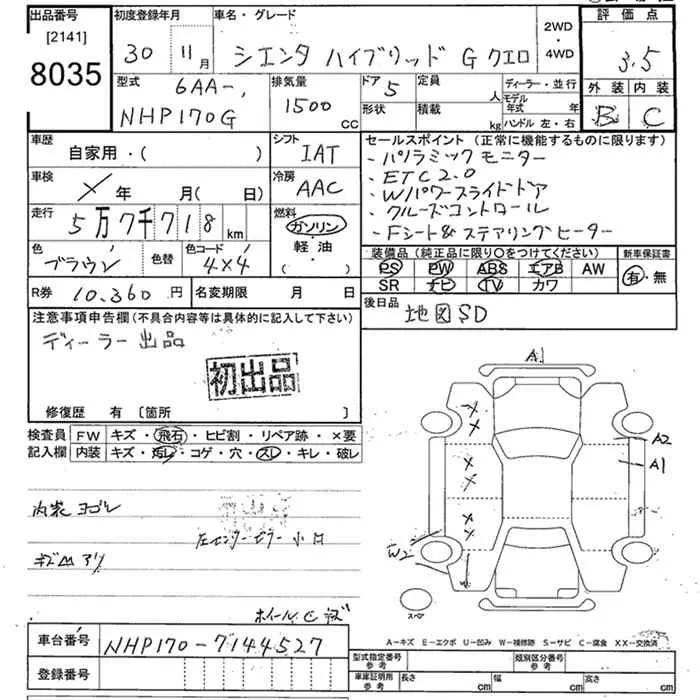 出品番号 初度登録年月 車名・グレード 2WD・4WD 評価点
[2141]
8035 30 11月 シエンタ ハイブリッド G クエロ 3.5
型式 6AA-, 排気量 ドア 5 定員 人 ディーラー・並行 外装 内装
NHP170G 1500 CC 形状 積載 kg モデル年式 年 ハンドル 左・右 B C
車歴 シフト セールスポイント (正常に機能するものに限ります)
自家用・( ) IAT ・パノラミックモニター
車検 冷房 ・ETC2.0
× 年 月( 日) AAC ・Wパワースライドドア
走行 燃料 ・クルーズコントロール
5万7千718 km ガソリン ・Fシート&ステアリングヒーター
色 色替 色コード 軽油・ 装備品 (純正品に限り○をつけてください) 新車保証書
ブラウン 4X4 ( ) PS PW ABS エアB AW 有・無
R券 10,360円 名変期限 月 日 SR ナビ TV カワ
注意事項申告欄 (不具合内容等は具体的に記入して下さい) 後日品 地図SD
ディーラー出品
初出品
修復歴 有 [箇所 ]
検査員 FW キズ・飛石・ヒビ割・リペア跡・×要
記入欄 内装 キズ・汚レ・コゲ・穴・スレ・キレ・破レ
A1
A2
A1
W2
内装ヨゴレ
左センターピラー小凹
キズ凹アリ
スペア
ホイールキズ
A-キズ E-エクボ U-凹み W-補修跡 S-サビ C-腐食 XX-交換済
車台番号 NHP170-7144527
登録番号
型式指定番号 参考 類別区分番号 参考
車庫証明用 参考 長さ cm 幅 cm 高さ cm